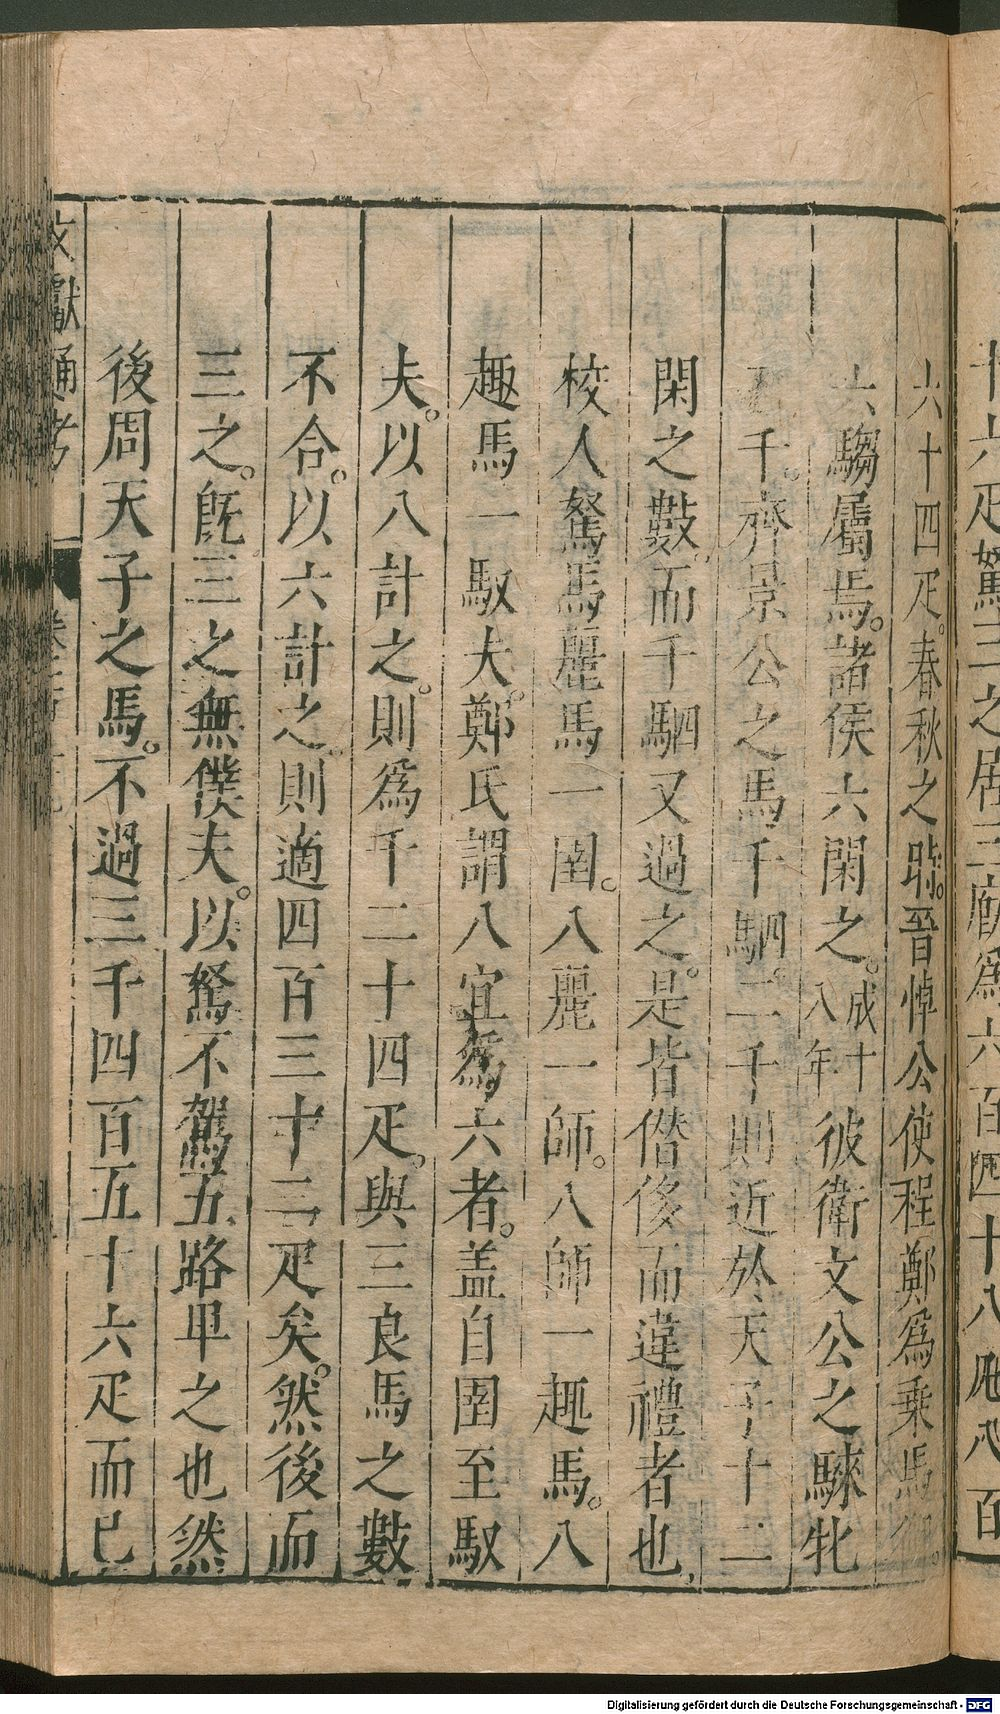 十六疋駑三之居三廄爲六百四十八疋八百
六十四疋。春秋之時。晉悼公使程鄭爲乗馬御。
六騶屬焉。諸侯六閑之。成十八年彼衛文公之騋牝
三千。齊景公之馬千駟。二千則近於天子十二
閑之數。而千駟又過之。是皆僭侈而違禮者也，
校人駑馬麗馬一圉。八麗一師。八師一趣馬。八
趣馬一馭夫。鄭氏謂八宜爲六者。盖自圉至馭
夫。以八計之。則爲千二十四疋。與三良馬之數
不合。以六計之。則適四百三十二疋矣。然後而
三之。旣三之無僕夫。以駑不駕五路卑之也然
後周天子之馬。不過三千四百五十六疋而已
文獻通考
Digitalisierung gefördert durch die Deutsche Forschungsgemeinschaft - DFG